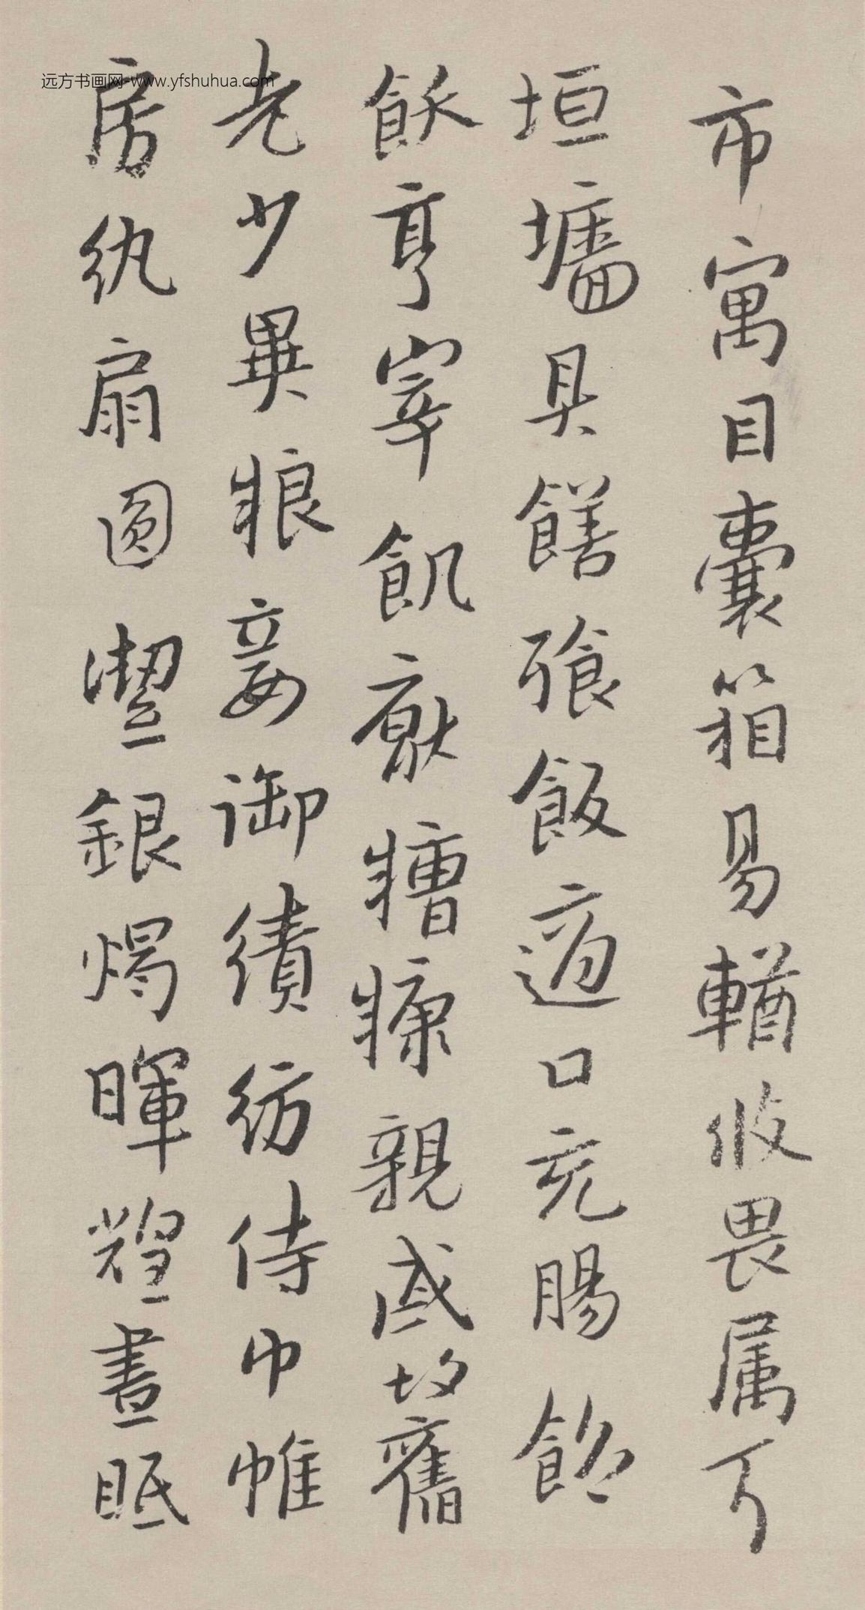 市寓目囊箱易輶攸畏属耳
垣墻具饍飱飯適口充腸飽
飫亨宰飢猒糟糠親戚故舊
老少異粮妾御績紡侍巾帷
房紈扇圓潔銀燭暉煌晝眠
远方书画网-www.yfshuhua.com